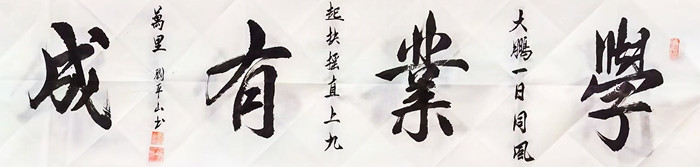 學
大鵬一日同風
業
起扶摇直上九
有
萬里 劉平山书
成